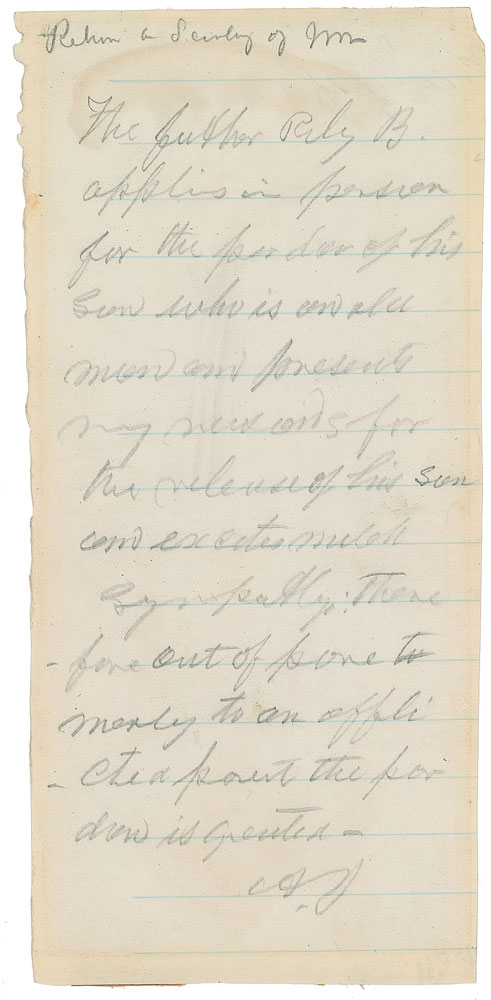 Return Secretary of War
The father Rily B.
applies in person
for the pardon of his
Son who is an old
man and presents
my reasons for
the release of his Son
and excites much
Sympathy; There
- fore out of pure to
mercy to an affli
- cted parent the par
don is granted -
A. J